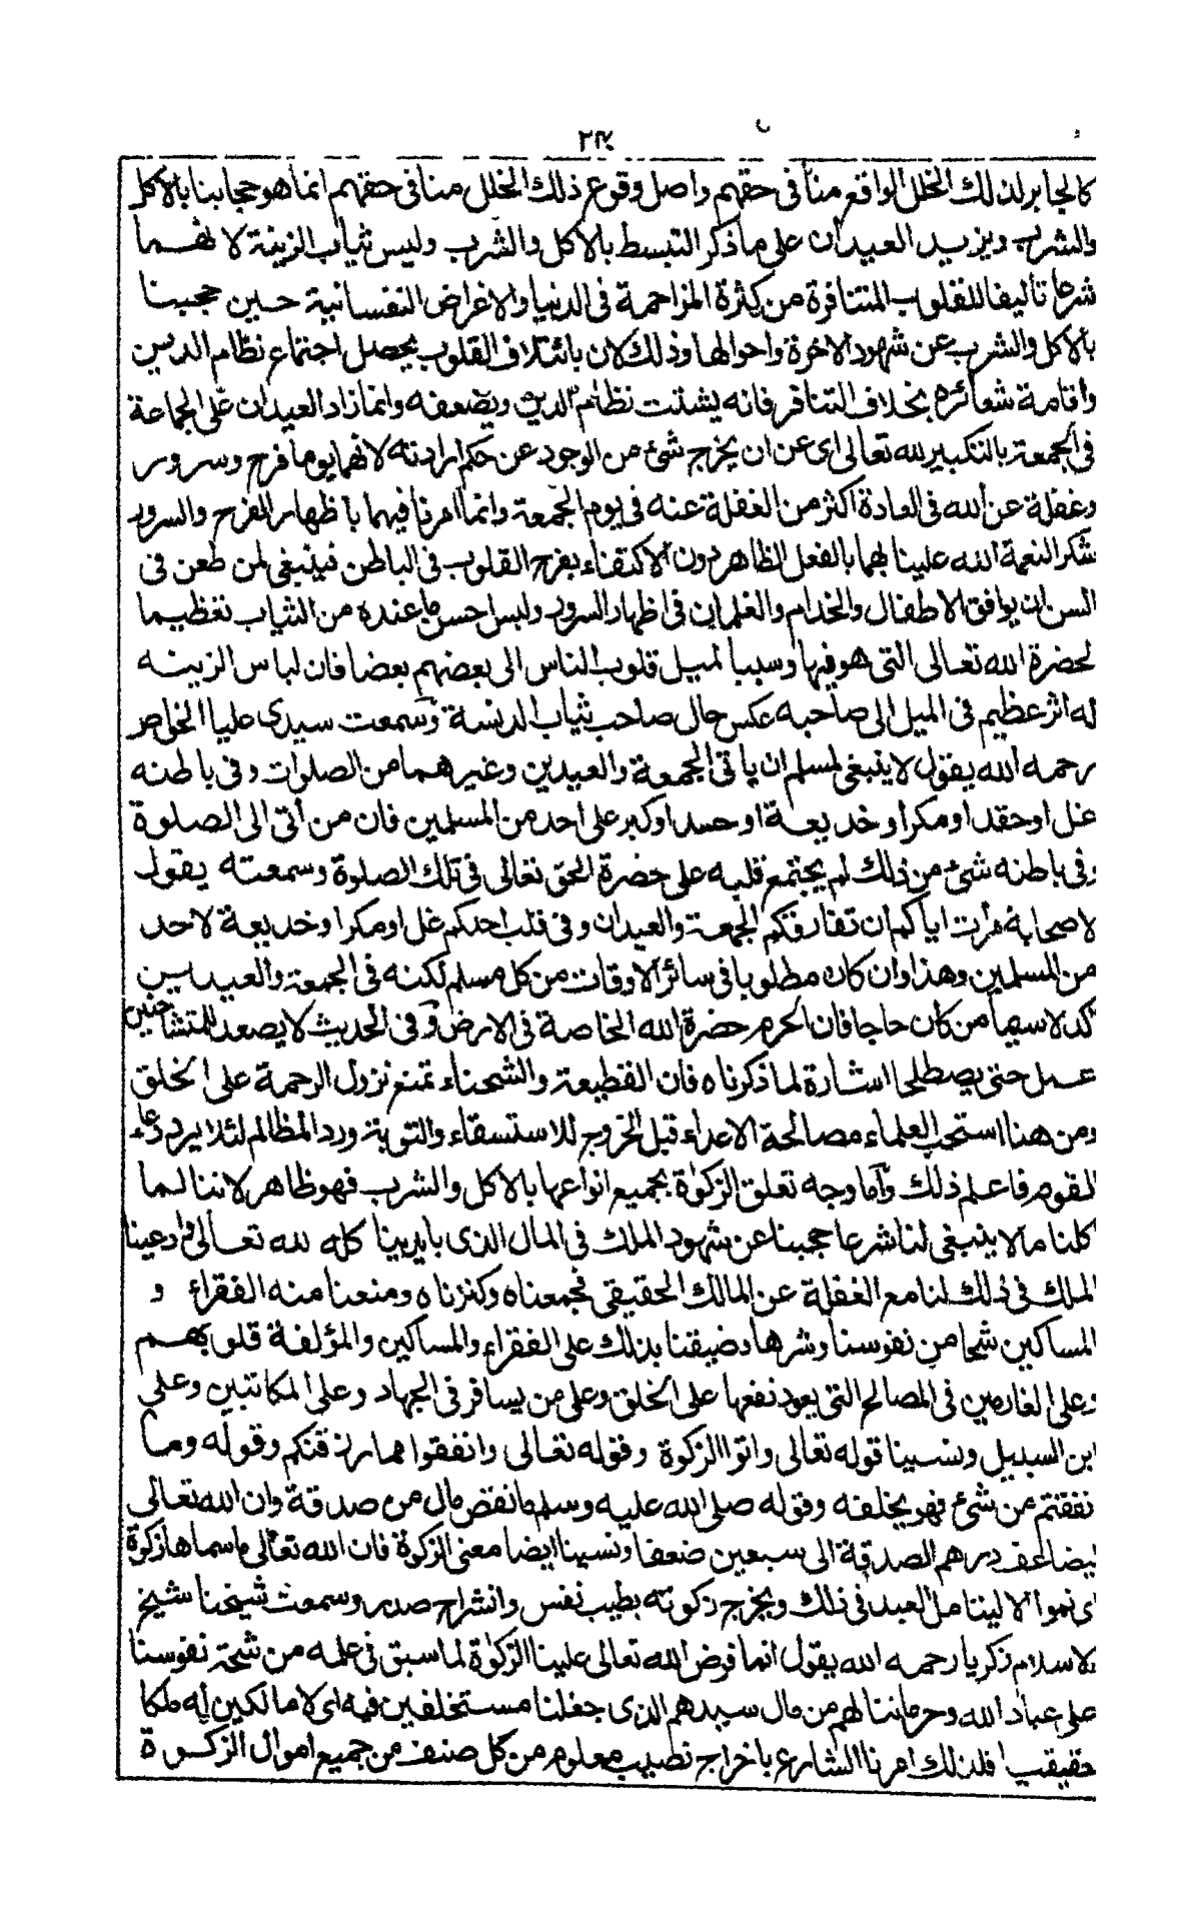 كالجابر لذلك الخلل الواقع منا في حقهم واصل وقوع ذلك الخلل منا في حقهم انما هو حجابنا بالاكل
والشرب ويزيد العيدان على ما ذكر التبسط بالاكل والشرب وليس ثياب الزينة لا نهما
شرعا تاليفا للقلوب المتنافرة من كثرة المزاحمة في الدنيا والاغراض النفسانية حين حجبنا
بالاكل والشرب عن شهود الاخرة واحوالها وذلك لان بائتلاف القلوب يحصل اجتماع نظام الدين
واقامة شعائره بخلاف التنافر فانه يشتت نظام الدين ويضعفه وانما زاد العيدان على الجماعة
في الجمعة بالتكبير لله تعالى اى عن ان يخرج شئ من الوجود عن حكم ارادته لانهما يوما فرح وسرور
وغفلة عن الله في العادة اكثر من الغفلة عنه في يوم الجمعة وانما امرنا فيهما باظهار الفرح والسرور
شكر النعمة الله علينا بهما بالفعل الظاهر دون الاكتفاء بفرح القلوب في الباطن فينبغي لمن طعن في
السن ان يوافق الاطفال والخدام والغلمان في اظهار السرور ولبس احسن ما عنده من الثياب تعظيما
لحضرة الله تعالى التي هو فيها وسببا لميل قلوب الناس الى بعضهم بعضا فان لباس الزينه
له اثر عظيم في الميل الى صاحبه عكس حال صاحب ثياب الدنسة وسمعت سيدي عليا الخواص
رحمه الله يقول لا ينبغي لمسلم ان ياتي الجمعة والعيدين وغيرهما من الصلوات وفي باطنه
غل او حقد او مكر او خديعة او حسد او كبر على احد من المسلمين فان من أتى الى الصلوة
وفي باطنه شئ من ذلك لم يجتمع قلبه على حضرة الحق تعالى في تلك الصلوة وسمعته يقول
لاصحابه مرات اياكم ان تفارقكم الجمعة والعيدان وفي قلب احدكم غل او مكر او خديعة لاحد
من المسلمين وهذا وان كان مطلوبا في سائر الاوقات من كل مسلم لكنه في الجمعة والعيدين
آكد لا سيما من كان حاجا فان الحرم حضرة الله الخاصة في الارض وفي الحديث لا يصعد للمتشاحنين
عمل حتى يصطلحا اشارة لما ذكرناه فان القطيعة والشحناء تمنع نزول الرحمة على الخلق
ومن هنا استحب العلماء مصالحة الاعداء قبل الخروج للاستسقاء والتوبة ورد المظالم لئلا يرد دعاء
القوم فاعلم ذلك وأما وجه تعلق الزكوة بجميع انواعها بالاكل والشرب فهو ظاهر لاننا لما
كلنا ما لا ينبغي لنا شرعا حجبنا عن شهود الملك في المال الذي بايدينا كله لله تعالى وادعينا
الملك في ذلك لنا مع الغفلة عن المالك الحقيقي فجمعناه وكنزناه ومنعنا منه الفقراء و
المساكين شحا من نفوسنا وشرها وضيقنا بذلك على الفقراء والمساكين والمؤلفة قلوبهم
وعلى الغارمين في المصالح التي يعود نفعها على الخلق وعلى من يسافر في الجهاد وعلى المكاتبين وعلى
ابن السبيل ونسينا قوله تعالى واتوا الزكوة وقوله تعالى وانفقوا مما رزقنكم وقوله وما
نفقتم من شئ فهو يخلفه وقوله صلى الله عليه وسلم ما نقص مال من صدقة وان الله تعالى
يضاعف درهم الصدقة الى سبعين ضعفا ونسينا ايضا معنى الزكوة فان الله تعالى ما سماها زكوة
اى نموا الا لينامل العبد في ذلك ويخرج زكوته بطيب نفس وانشراح صدر وسمعت شيخنا شيخ
الاسلام زكريا رحمه الله يقول انما فرض الله تعالى علينا الزكوة لما سبق في علمه من شحة نفوسنا
على عباد الله وحرماننا لهم من مال سيدهم الذي جعلنا مستخلفين فيه اى لا مالكين له ملكا
حقيقيا فلذلك امرنا الشارع باخراج نصيب معلوم من كل صنف من جميع اموال الزكوة